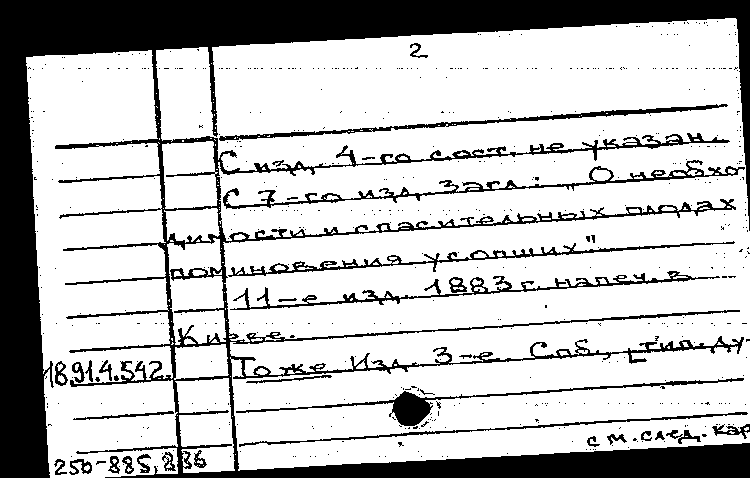 2
С изд. 4-го сост. не указан.
С 7-го изд. загл: „О необхо-
димости и спасительных плодах
поминовения усопших"
11-е изд. 1883 г. напеч. в
Киеве.
18.91.4.542. То же Изд. 3-е. Спб., [тип. Ду-
см. след. кар
250-885, 836